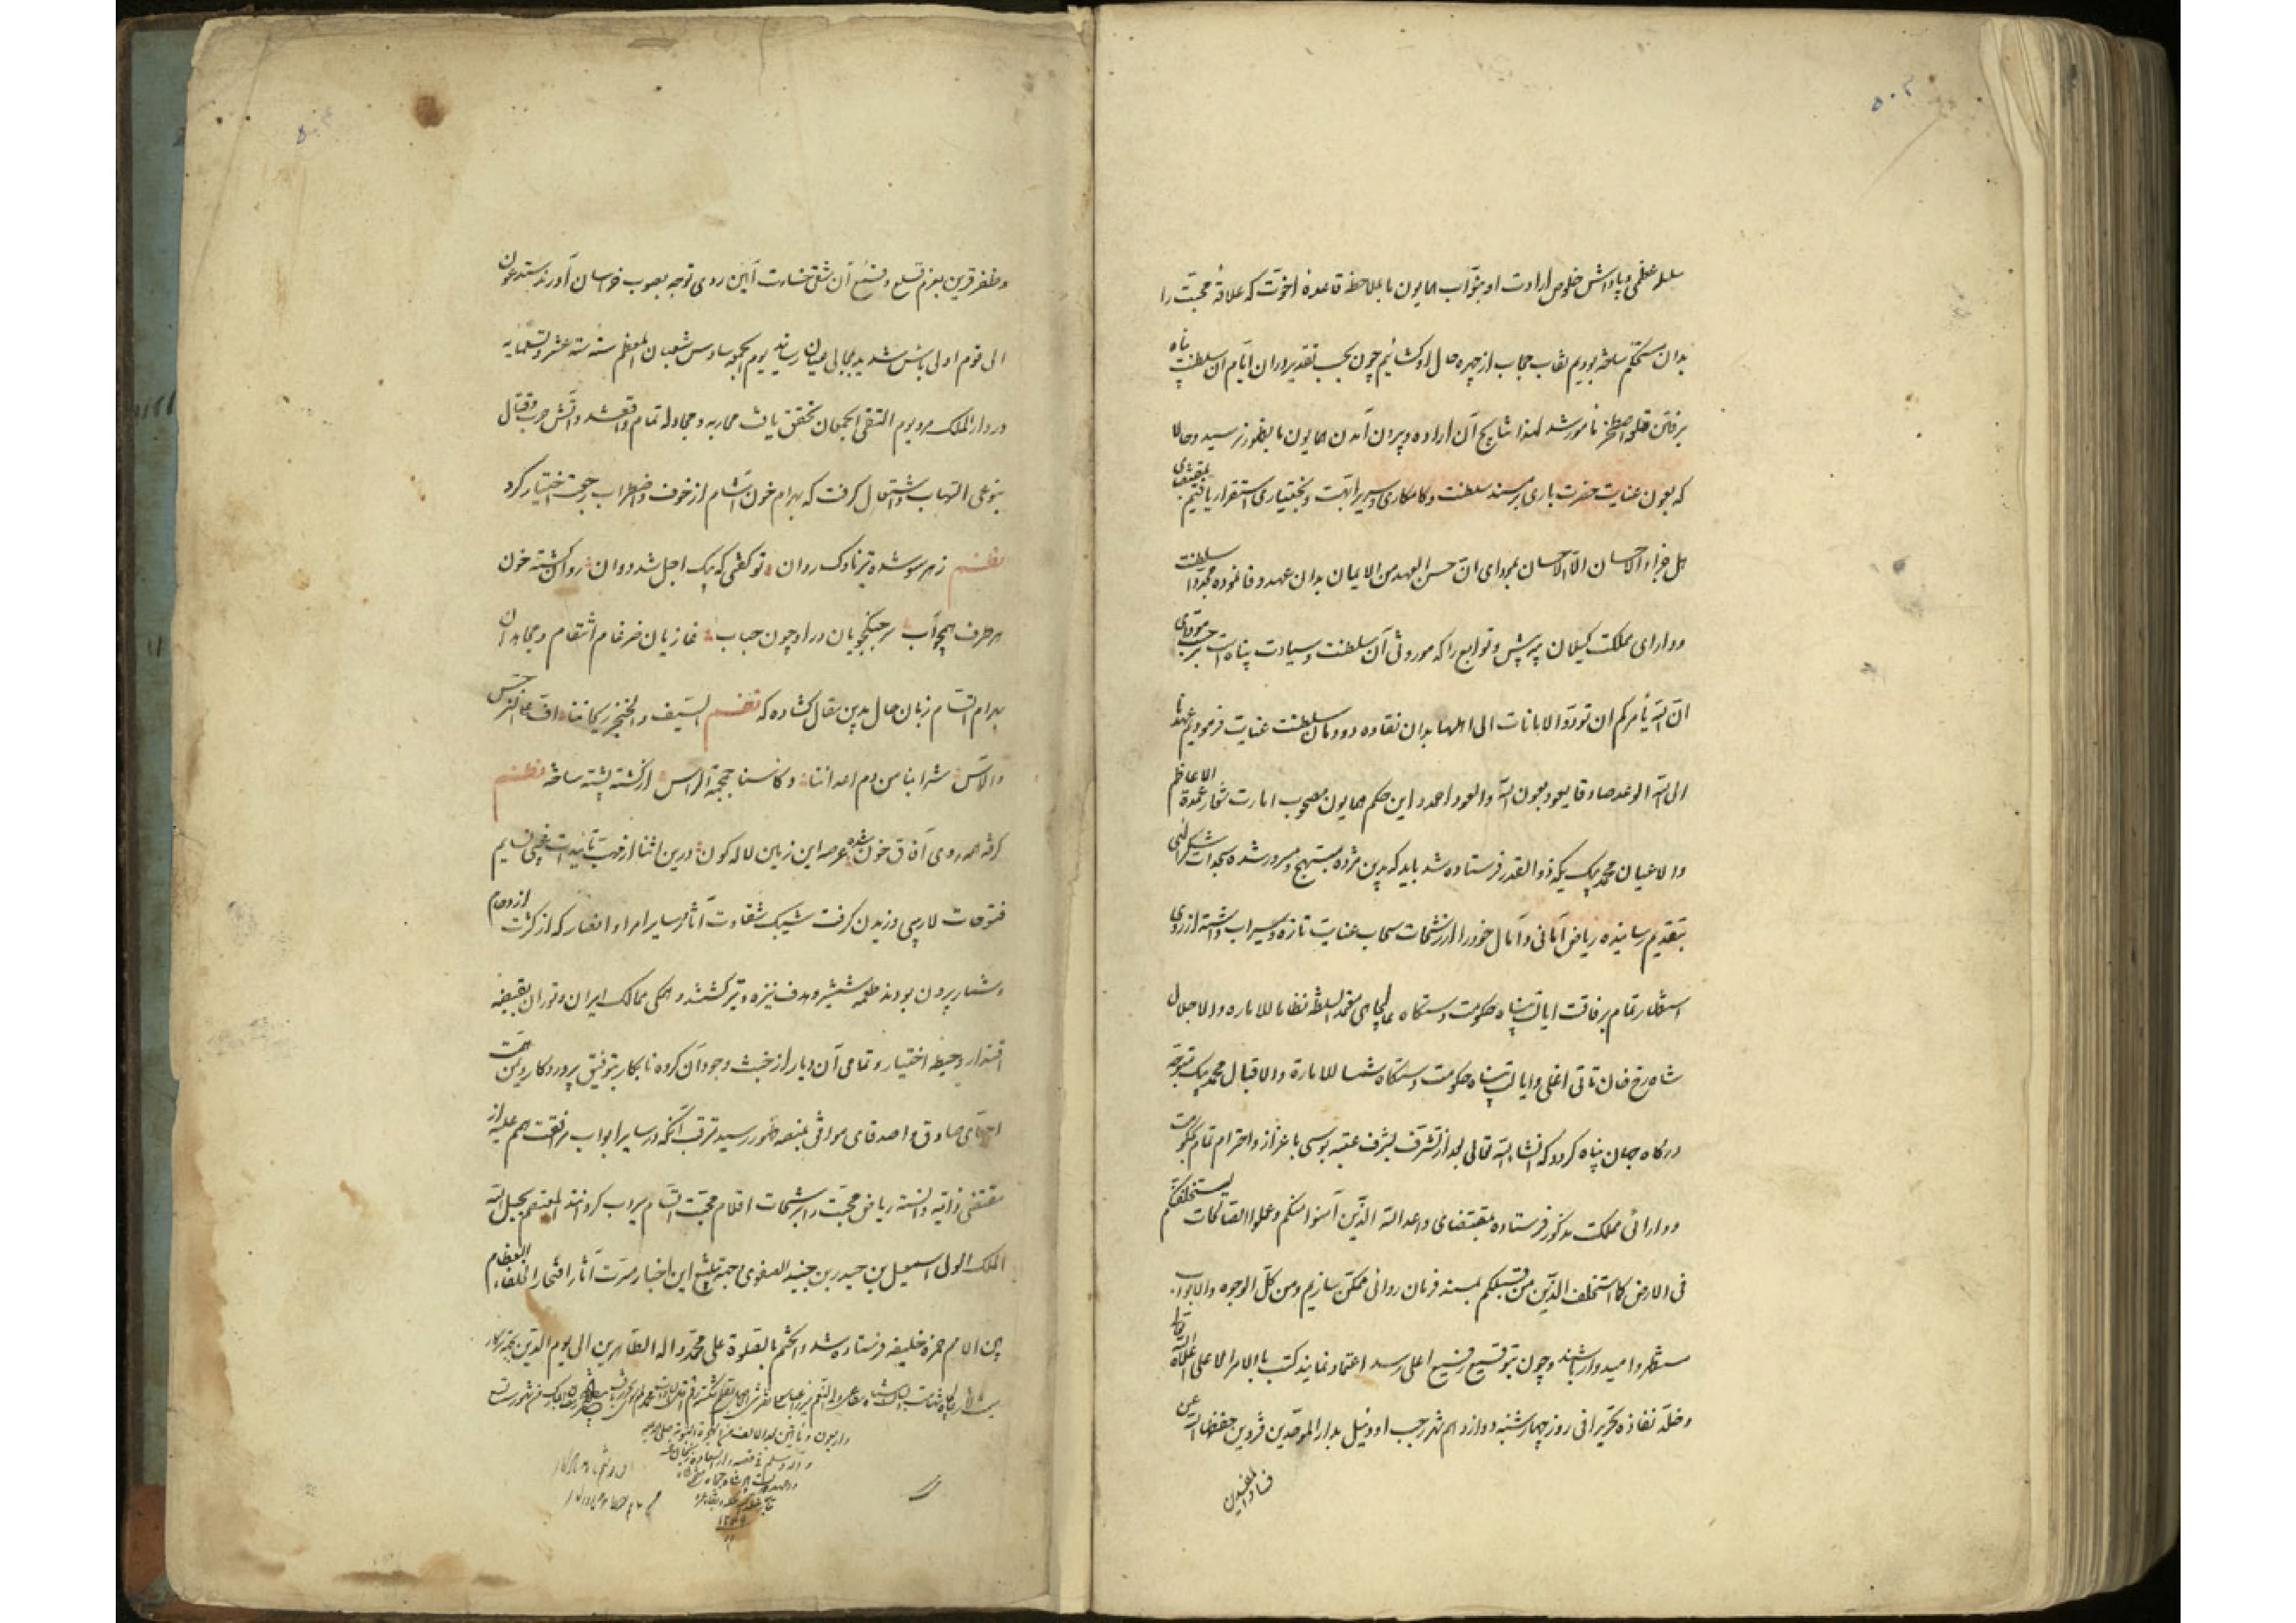 ۵۰۳
عظمی و پاداش خلوص ارادت او بنوّاب همایون ما بملاحظه قاعده اخوّت که علاقه محبّت را
بدان مستحکم ساخته بودیم نقاب حجاب از چهره حال او کشائیم چون بحسب تقدیر در ان ایّام ان سلطنت پناه
برفتن قلعه اصطخر مأمور شد لهذا نتایج آن اراده و بیرون آمدن همایون ما بظهور نرسید و حالا
که بعون عنایت حضرت باری بر مسند سلطنت و کامکاری و سریر ابّهت و بختیاری استقرار یافتیم بمقتضای
هل جزاء الاحسان الّا الاحسان بمودای انّ حسن العهد من الایمان بدان عهد وفا نموده مجدّدا سلطنت
و دارای مملکت کیلان پیه پش و توابع را که موروثی آن سلطنت و سیادت پناه است بر حسب مودّای
انّ اللّه یأمرکم ان تودّوا الامانات الی اهلها بدان نقاوه دودمان سلطنت عنایت فرمودیم
الی اللّه الوعد صادقا یعود بعون اللّه والعود احمد و این حکم همایون مصحوب امارت شعار عمدة الاعاظم
والاعیان محمد بیک ذوالقدر فرستاده شد باید که بدین مژده مبتهج و مسرور شده سجدات شکر الهی
بتقدیم رسانیده ریاض امانی و آمال خود را از رشحات سحاب عنایت تازه و سیراب داشته از روی
استظهار تمام برفاقت ایالت پناه حکومت دستکاه عالیجاهی معتمد السلطنه نظاما للاماره والاجلال
شاه رخ خان تاتی اغلی و ایالت پناه حکومت دستکاه شمسا للامارة والاقبال محمد بیک متوجّه
درکاه جهان پناه کردد که انشاء اللّه تعالی بعد از تشرّف بشرف عتبه بوسی با عزاز و احترام تمام بحکومت
و دارائی مملکت مذکور فرستاده بمقتضای وعد اللّه الذّین آمنوا منکم و عملوا الصّالحات لیستخلفنّکم
فی الارض کما استخلف الذّین من قبلکم بمسند فرمان روائی متمکّن سازیم و من کلّ الوجوه والابواب
مستظهر و امیدوار باشند و چون بتوقیع رفیع اعلی رسد اعتماد نمایند کتب بالامر الاعلی اعلاه اللّه تعالی
و خلّد نفاذه تحریرا فی روز چهارشنبه دوازدهم شهر رجب اودئیل بدار الموحّدین قزوین حفظها اللّه عن
فساد المفسدین
۵۰۴
و ظفر قرین بعزم قلع و قمع آن شقی خسارت آئین روی توجه بصوب خراسان آوردند ستدعون
الی قوم اولی باس شدید بمجالی عیان رسانید یوم الجمعه سادس شعبان المعظم سنه ستة عشر و تسعمایه
در دار الملک مرو یوم التقی الجمعان تحقق یافت محاربه و مجادله تمام واقع شد و آتش حرب و قتال
بنوعی التهاب و اشتعال کرفت که بهرام خون آشام از خوف و اضطراب رجعت اختیار کرد
نظم ز هر سو شده تیر ناوک روان تو کفتی که پیک اجل شد دوان روان کشته خون
هر طرف همچو آب سر جنکجویان در او چون حباب غازیان ضرغام انتقام و مجاهدان
بهرام انتقام زبان حال بدین مقال کشاده که نظم السّیف والخنجر ریحاننا افّ علی النرجس
والآس شرابنا من دم اعدائنا و کاسنا جمجمة الراس از کشته پشته ساخته نظم
کرفته همه روی آفاق خون شده عرصه این زمین لاله کون درین اثنا از مهبّ تأییدات غیبی نسایم
فتوحات لاریبی وزیدن کرفت شیبک شقاوت آثار و سایر امراء و انصار که از کثرت ازدحام
و شمار بیرون بودند طعمه شمشیر و هدف نیزه و تیر کشتند و همکی ممالک ایران و توران بقبضه
اقتدار و حیطه اختیار و تمامی آن دیار از خبث وجود آن کروه نابکار بتوفیق پروردکار و یمن همّت
احبّای صادق و اصدقای موافق بمنصه ظهور رسید مترقّب آنکه در سایر ابواب مرافقت هم علیه از
مقتضی ذاتیه دانسته ریاض محبّت را برشحات اقلام محبّت التیام سیراب کردانند المعتصم بحبل اللّه
الملک الولی اسمعیل بن حیدر بن جنید الصفوی جهة تبلیغ این اخبار مسرّت آثار افتخار الخلفاء العظام
بین الانام حمزه خلیفه فرستاده شد والختم بالصلوة علی محمّد و اله الطّاهرین الی یوم الدّین
۱۲۴۹